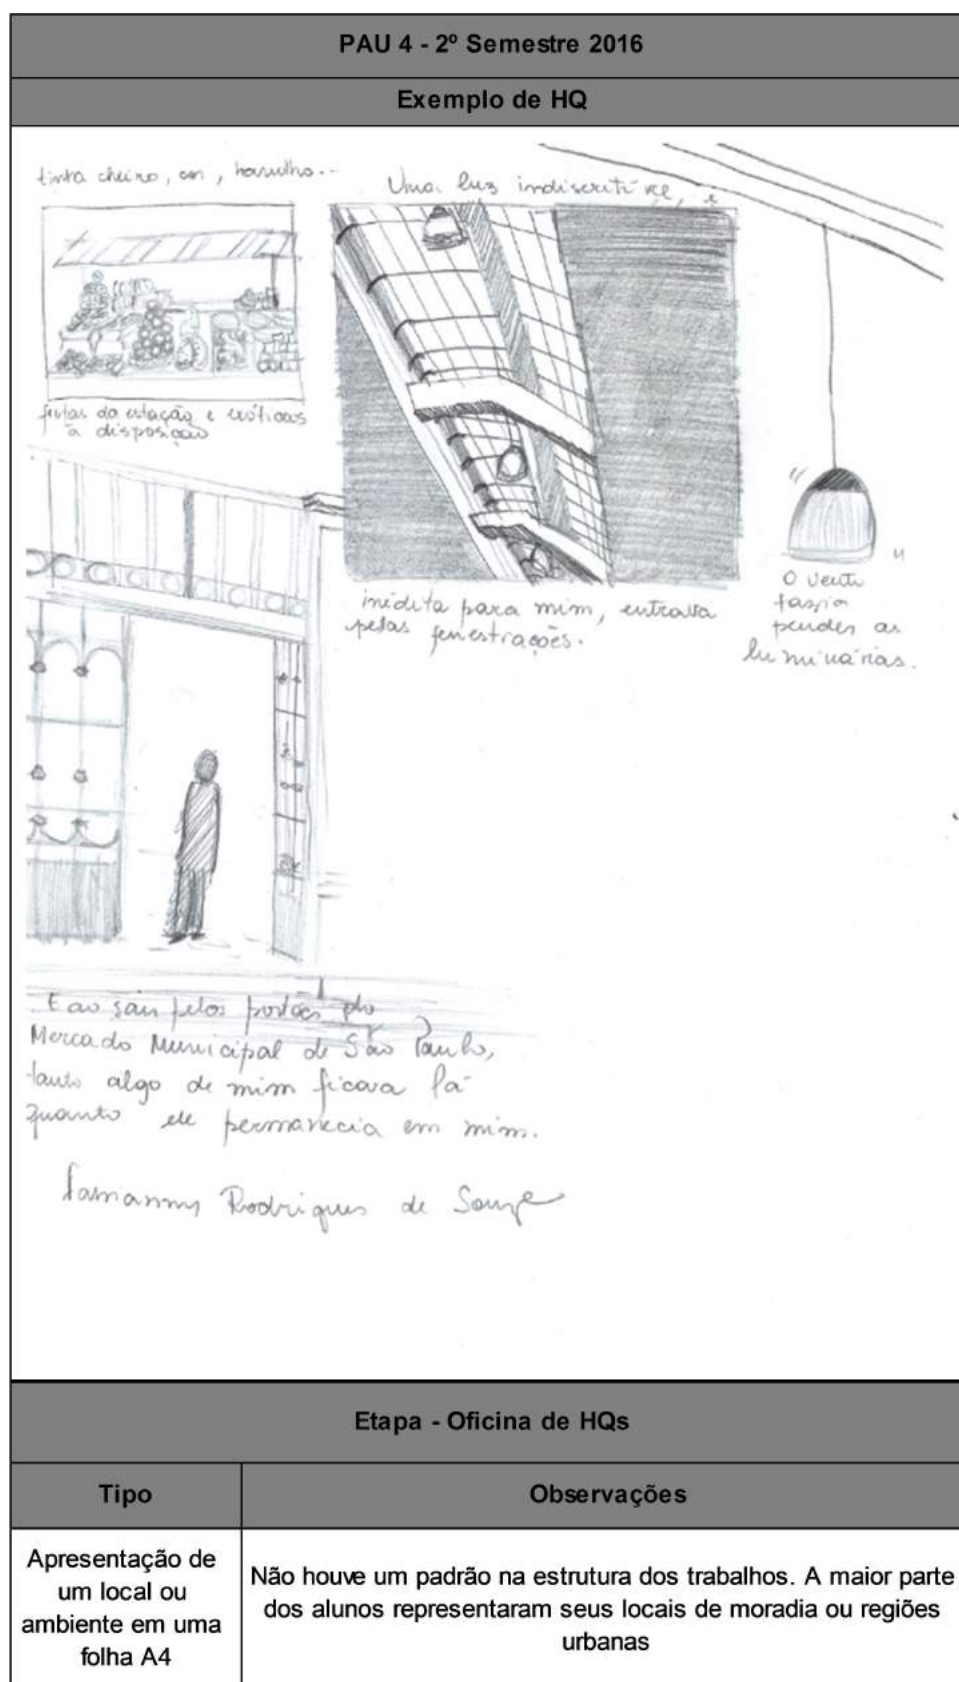 PAU 4 - 2º Semestre 2016
Exemplo de HQ
tinta cheiro, cor, barulho...
frutas da estação e exóticas
à disposição
Uma luz indiscritível, e
inédita para mim, entrava
pelas fenestrações.
O vento
fazia
pender as
luminárias.
E ao sair pelos portões do
Mercado Municipal de São Paulo,
tanto algo de mim ficava lá
quanto ele permanecia em mim.
Rodrigues de Souza
Etapa - Oficina de HQs
Tipo
Observações
Apresentação de
um local ou
ambiente em uma
folha A4
Não houve um padrão na estrutura dos trabalhos. A maior parte
dos alunos representaram seus locais de moradia ou regiões
urbanas